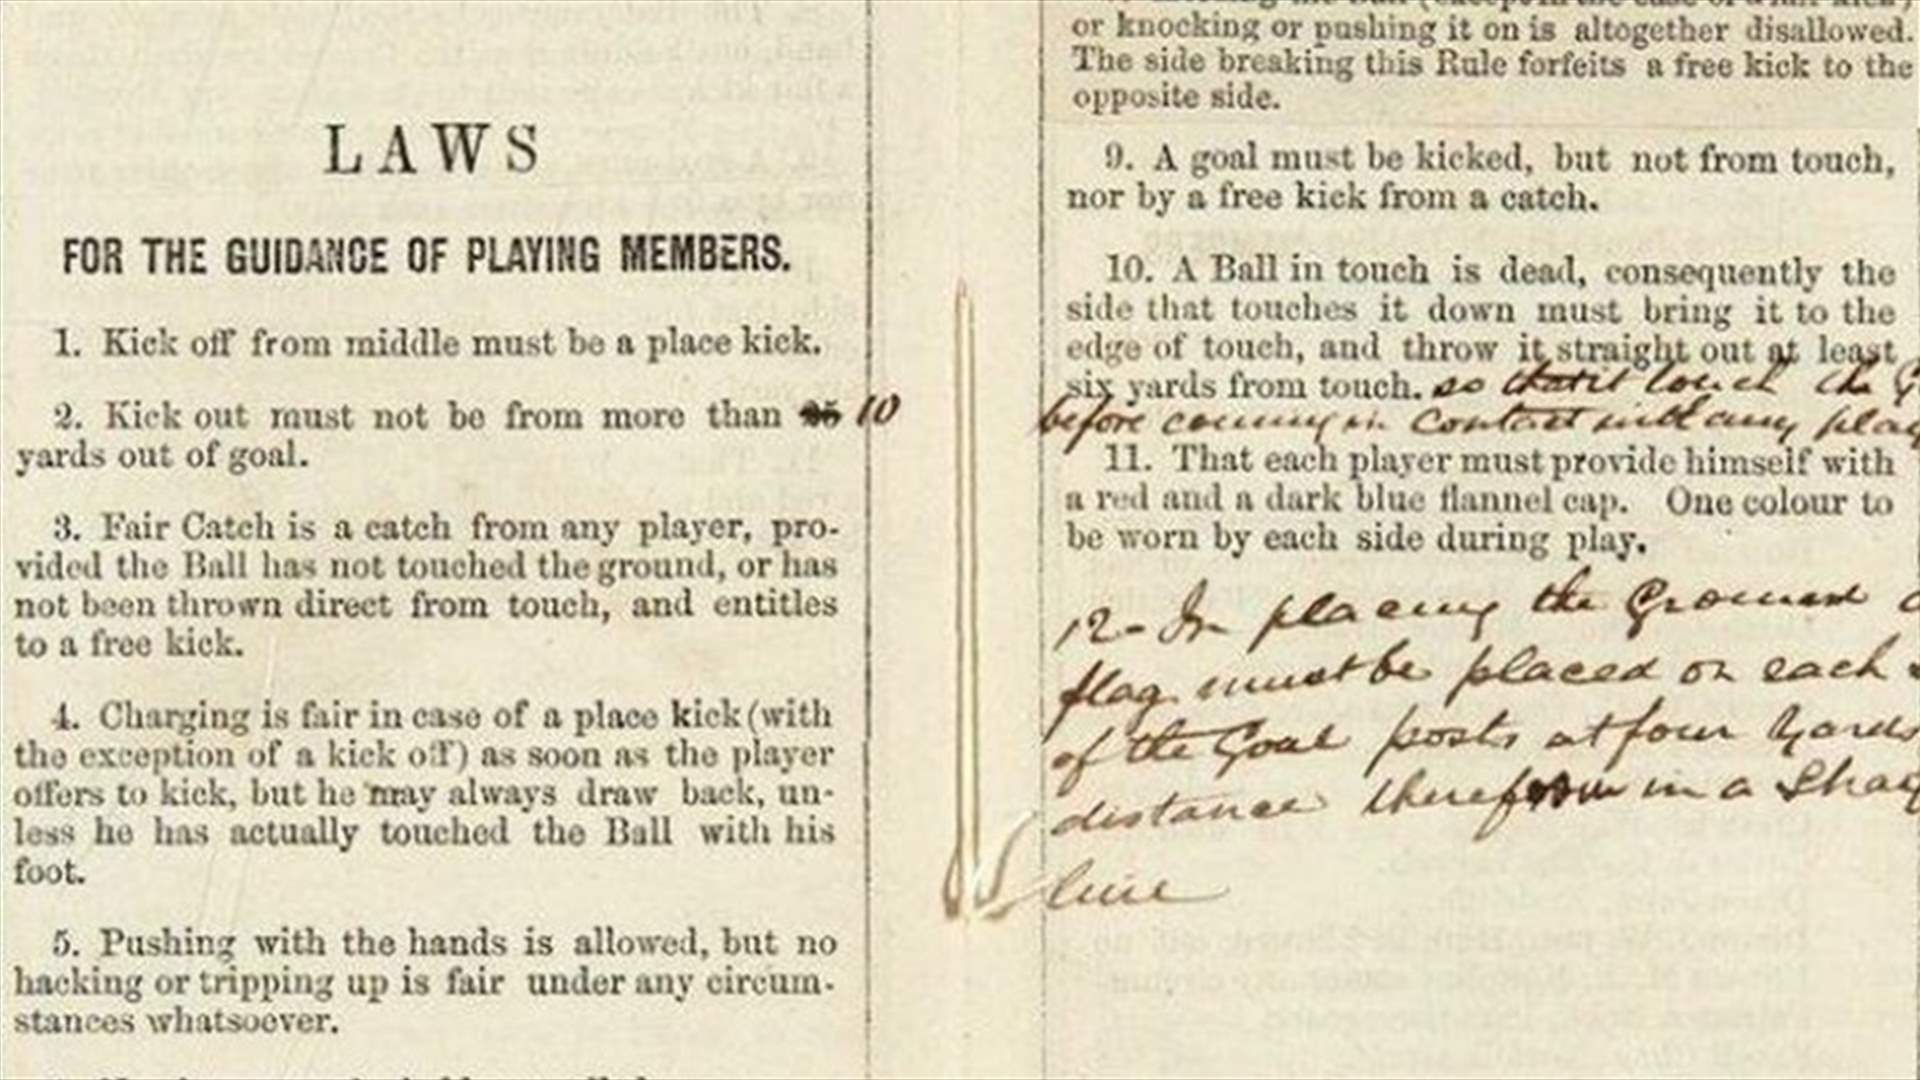 LAWS
FOR THE GUIDANCE OF PLAYING MEMBERS.
1. Kick off from middle must be a place kick.
2. Kick out must not be from more than 25 10
yards out of goal.
3. Fair Catch is a catch from any player, pro-
vided the Ball has not touched the ground, or has
not been thrown direct from touch, and entitles
to a free kick.
4. Charging is fair in case of a place kick (with
the exception of a kick off) as soon as the player
offers to kick, but he may always draw back, un-
less he has actually touched the Ball with his
foot.
5. Pushing with the hands is allowed, but no
hacking or tripping up is fair under any circum-
stances whatsoever.
or knocking or pushing it on is altogether disallowed.
The side breaking this Rule forfeits a free kick to the
opposite side.
9. A goal must be kicked, but not from touch,
nor by a free kick from a catch.
10. A Ball in touch is dead, consequently the
side that touches it down must bring it to the
edge of touch, and throw it straight out at least
six yards from touch. so that it touch the
before coming in contact with any
11. That each player must provide himself with
a red and a dark blue flannel cap. One colour to
be worn by each side during play.
12- In placing the Ground
flag must be placed on each
of the Goal posts at four yards
distance therefrom in a
line